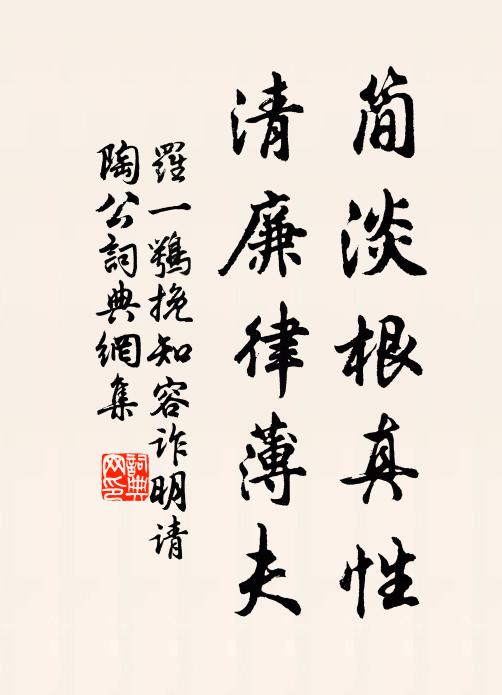 简淡根真性
清廉律薄夫
羅一鶚挽知容诈明请
陶公詞典網集
詞典网印